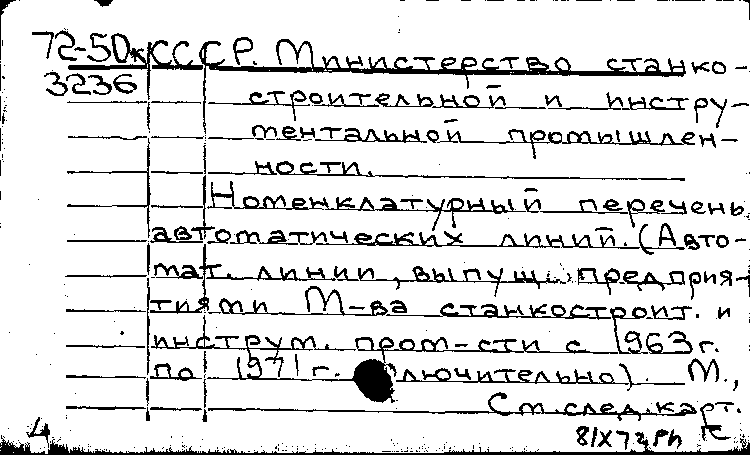 72-50к СССР. Министерство станко-
3236
строительной и инстру-
ментальной промышлен-
ности.
Номенклатурный перечень
автоматических линий. (Авто-
мат. линии, выпущ. предприя-
тиями М-ва станкостроит. и
инструм. пром-сти с 1963 г.
по 1971 г. лючительно). М.,
См.след.карт.
4